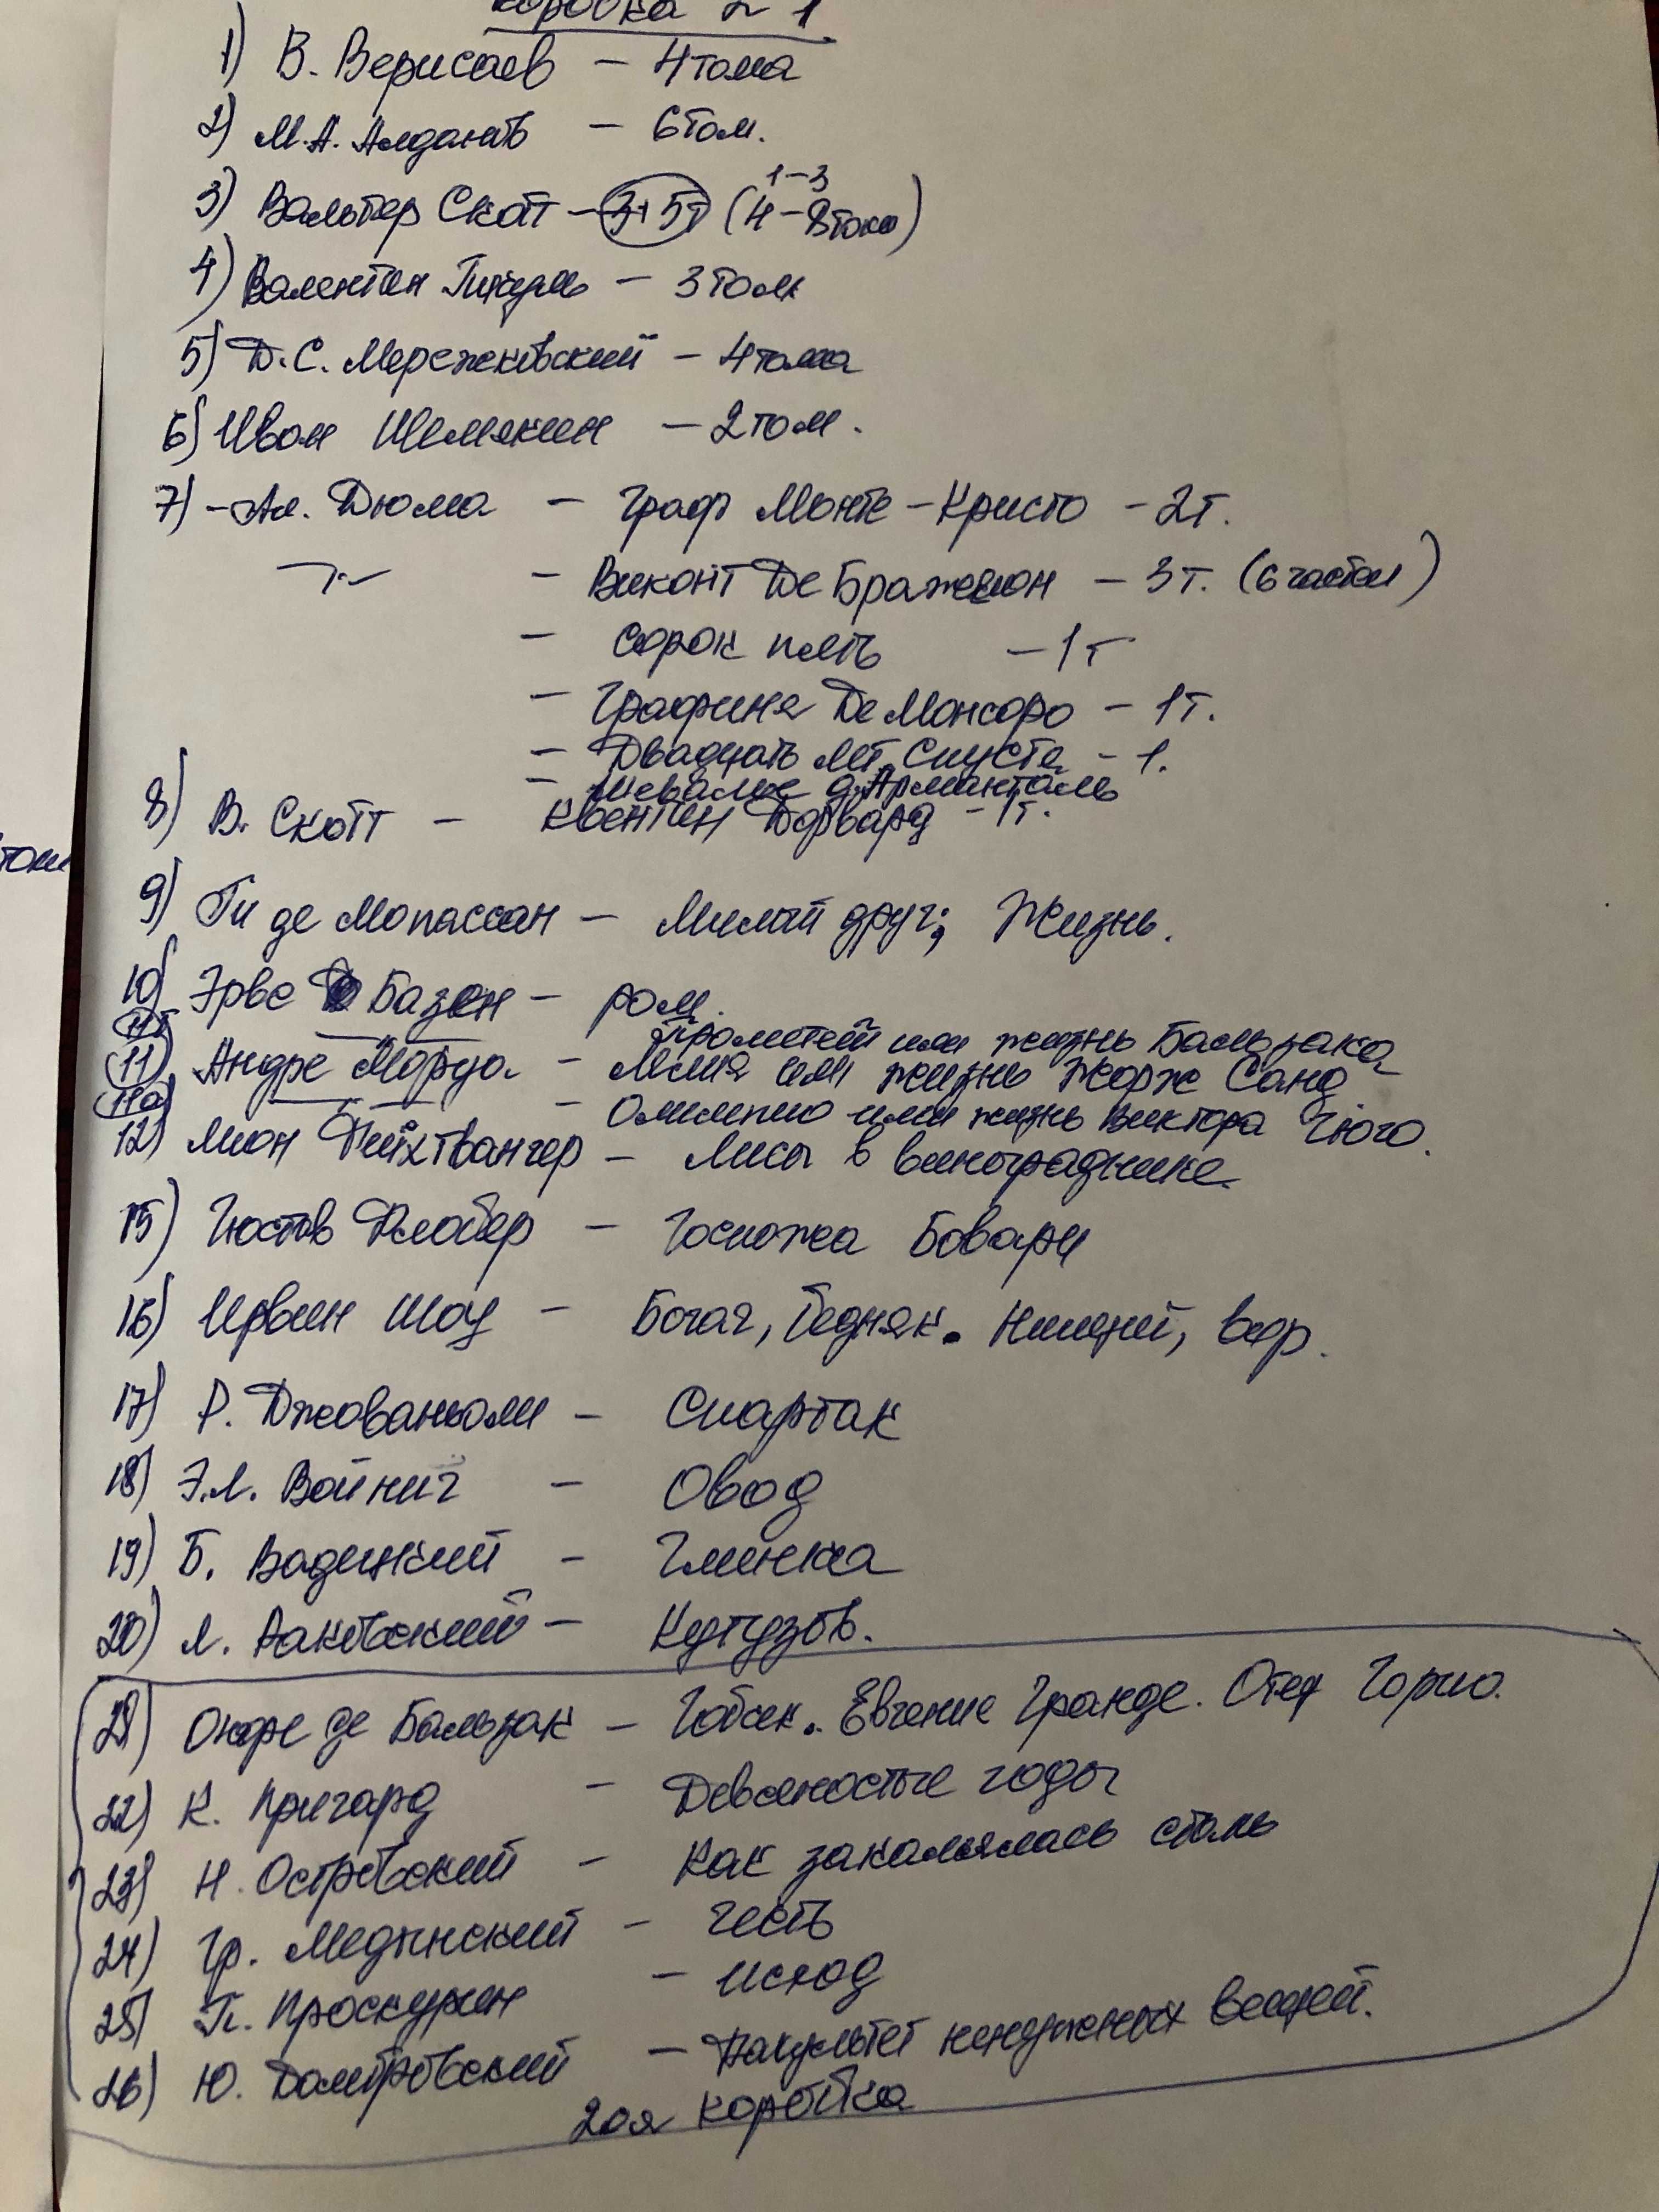 коробка № 1
1) В. Вересаев – 4 тома
2) М.А. Алданов – 6 том.
1–3
3) Вальтер Скотт – 3+5т (4–8 тома)
4) Валентин Пикуль – 3 том
5) Д.С. Мережковский – 4 тома
6) Иван Шемякин – 2 том.
7) – Ал. Дюма – Граф Монте-Кристо – 2т.
– Виконт Де Бражелон – 3т. (6 частей)
– Сорок пять – 1т
– Графиня Де Монсоро – 1т.
– Двадцать лет спустя – 1.
– Шевалье д'Арманталь
8) В. Скотт – Квентин Дорвард – 1т.
9) Ги де Мопассан – Милый друг; Жизнь.
10) Эрве Базен – ром.
11б Прометей или жизнь Бальзака
11) Андре Моруа – Лелия или жизнь Жорж Санд
11а) – Олимпио или жизнь Виктора Гюго.
12) Лион Фейхтвангер – Лисы в винограднике
15) Гюстав Флобер – Госпожа Бовари
16) Ирвин Шоу – Богач, бедняк. Нищий, вор.
17) Р. Джованьоли – Спартак
18) Э.Л. Войнич – Овод
19) Б. Вадецкий – Глинка
20) Л. Раковский – Кутузов.
21) Оноре де Бальзак – Гобсек. Евгение Гранде. Отец Горио.
22) К. Причард – Девяностые годы
23) Н. Островский – Как закалялась сталь
24) Гр. Медынский – Честь
25) П. Проскурин – Исход
26) Ю. Домбровский – Факультет ненужных вещей.
2ая коробка